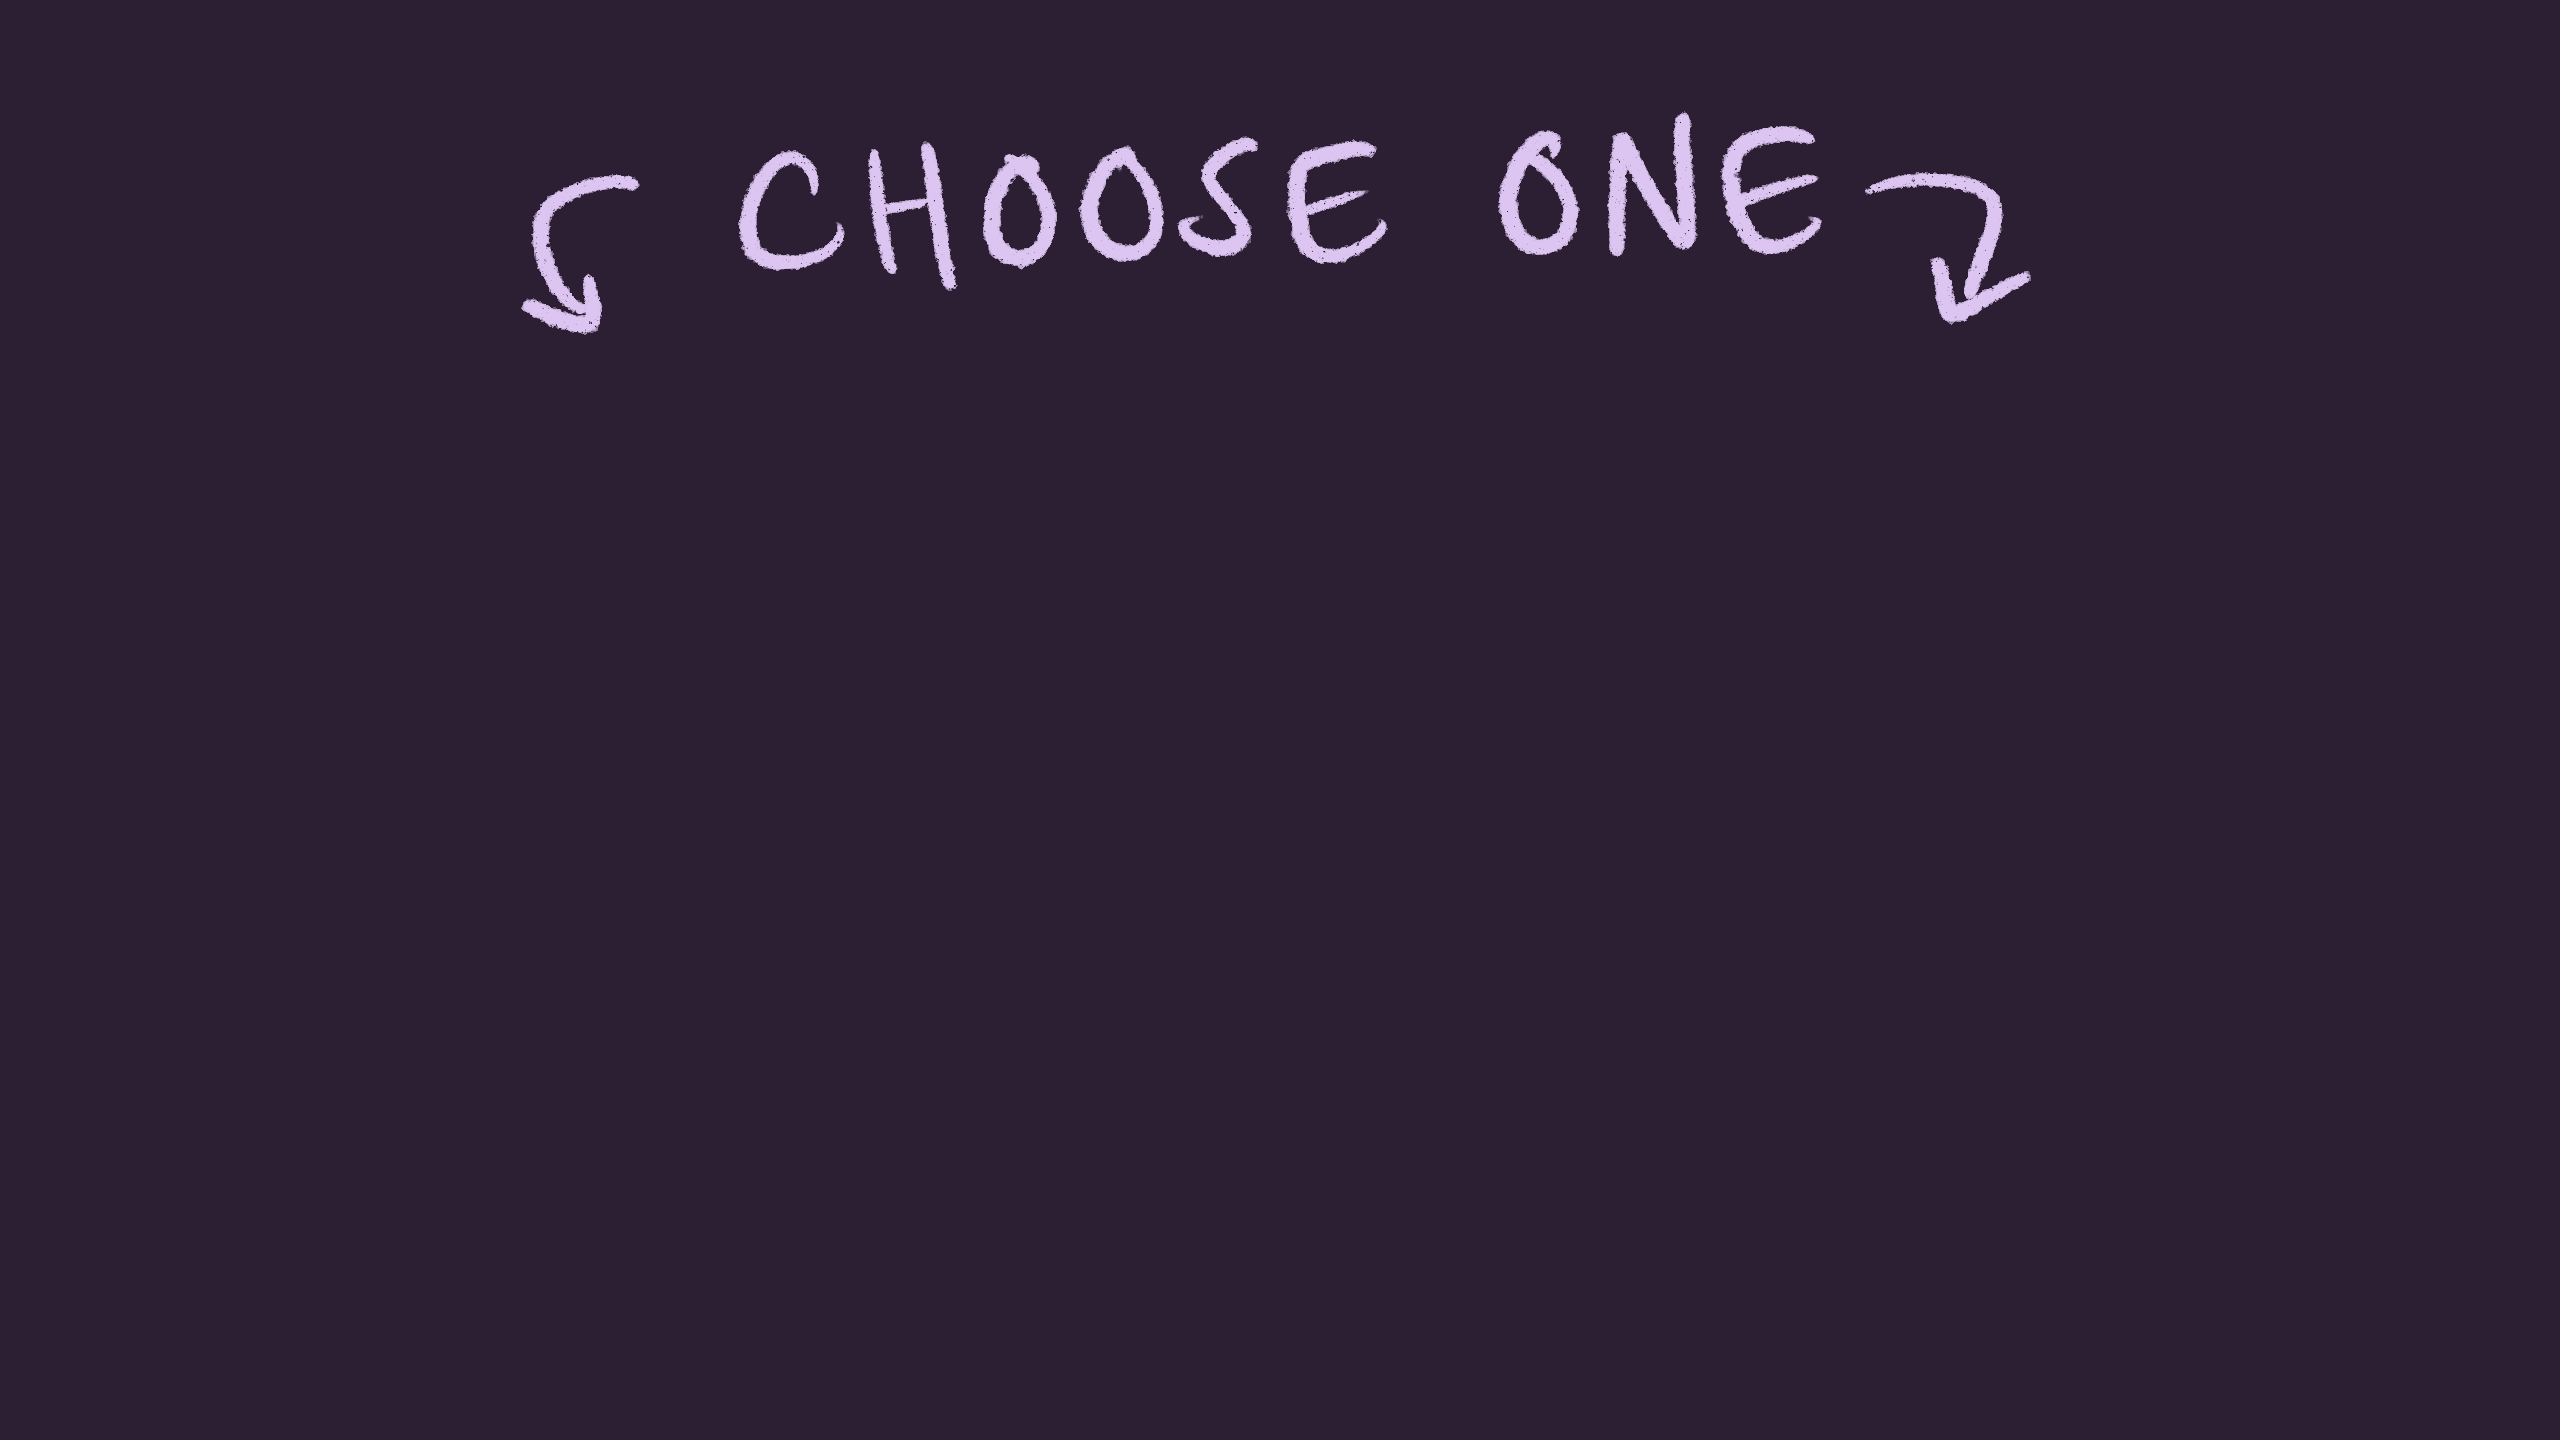 CHOOSE ONE